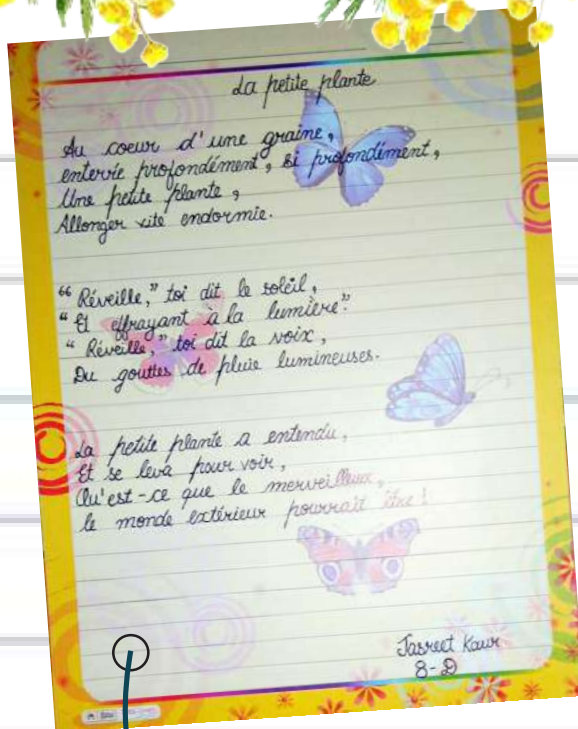 La petite plante
Au coeur d'une graine,
enterrée profondément, si profondément,
Une petite plante,
Allonger vite endormie.
"Réveille," toi dit le soleil,
"Et effrayant à la lumière".
"Réveille," toi dit la voix,
Du gouttes de pluie lumineuses.
La petite plante a entendu,
Et se leva pour voir,
Qu'est-ce que le merveilleux,
le monde extérieur pourrait être!
Jasreet Kaur
8-D